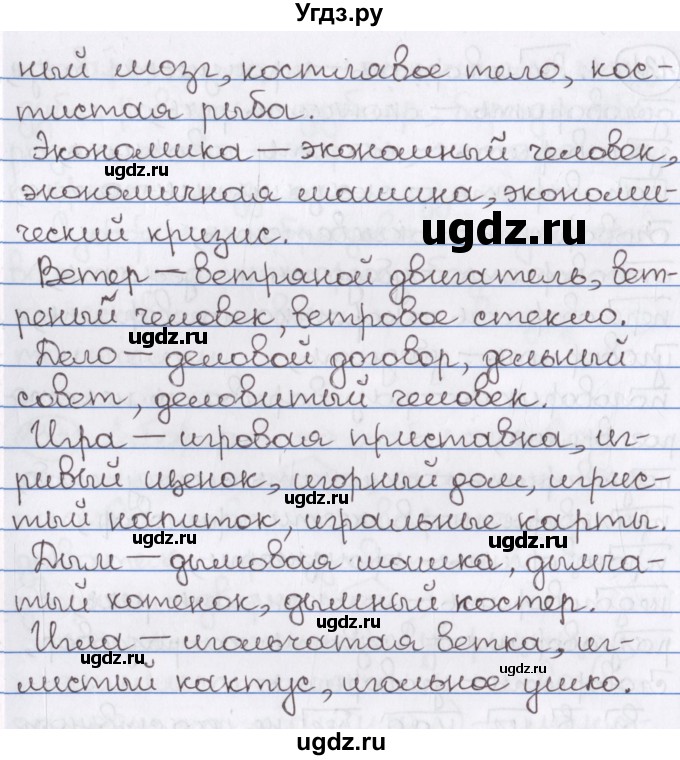 Угдз.ру
ный мозг, костлявое тело, кос-
тистая рыба.
Экономика — экономный человек,
ugdz.ru
экономичная машина, экономи-
ческий кризис.
ugdz.ru
Ветер — ветряной двигатель, вет-
реный человек, ветровое стекло.
ugdz.ru
Дело — деловой договор, дельный
совет, деловитый человек.
Игра — игровая приставка, иг-
ривый щенок, игорный дом, игрис-
ugdz.ru
тый напиток, игральные карты.
ugdz.ru
ugdz.ru
Дым — дымовая шашка, дымча-
тый котенок, дымный костер.
Игла — игольчатая ветка, иг-
ugdz.ru
ugdz.ru
листый кактус, игольное ушко.
ugdz.ru